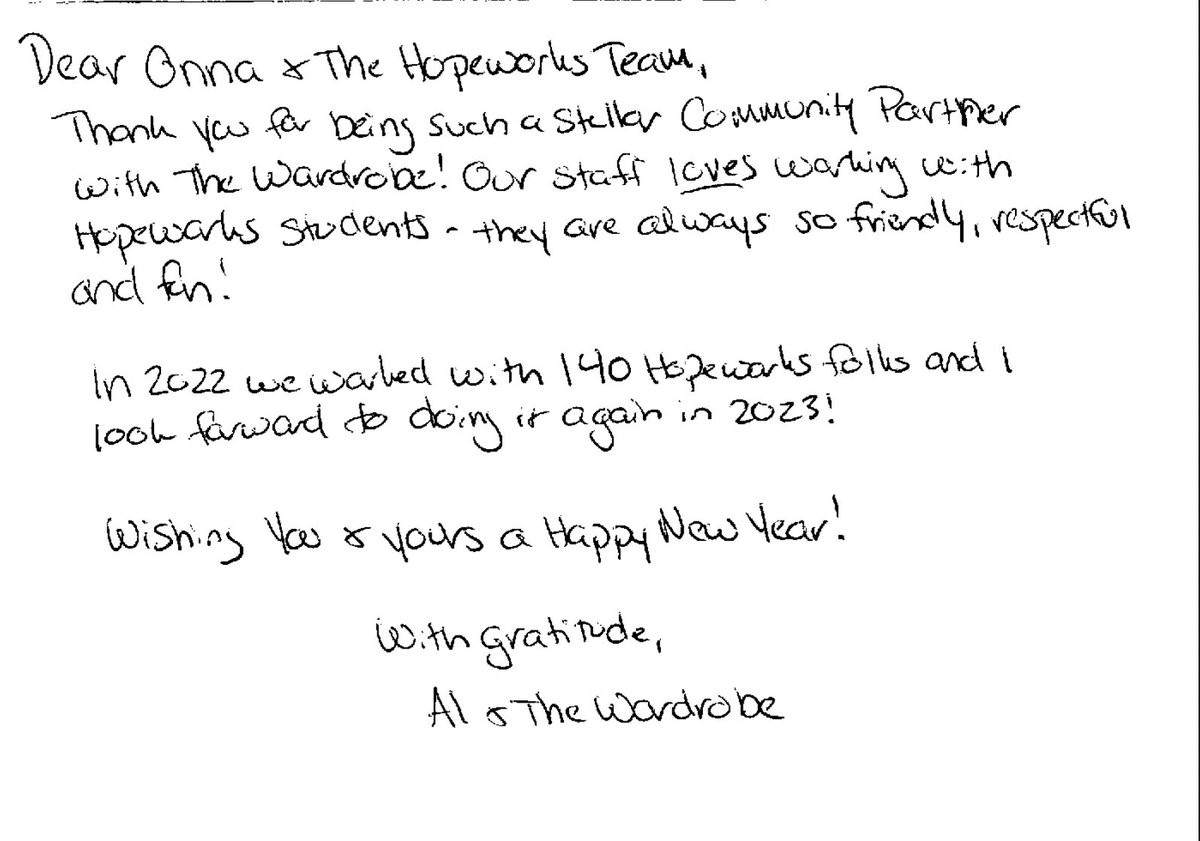 Dear Onna & The Hopeworks Team,
Thank you for being such a stellar Community Partner
with The Wardrobe! Our staff loves working with
Hopeworks students - they are always so friendly, respectful
and fun!
In 2022 we worked with 140 Hopeworks folks and I
look forward to doing it again in 2023!
Wishing You & yours a Happy New Year!
With gratitude,
Al & The Wardrobe